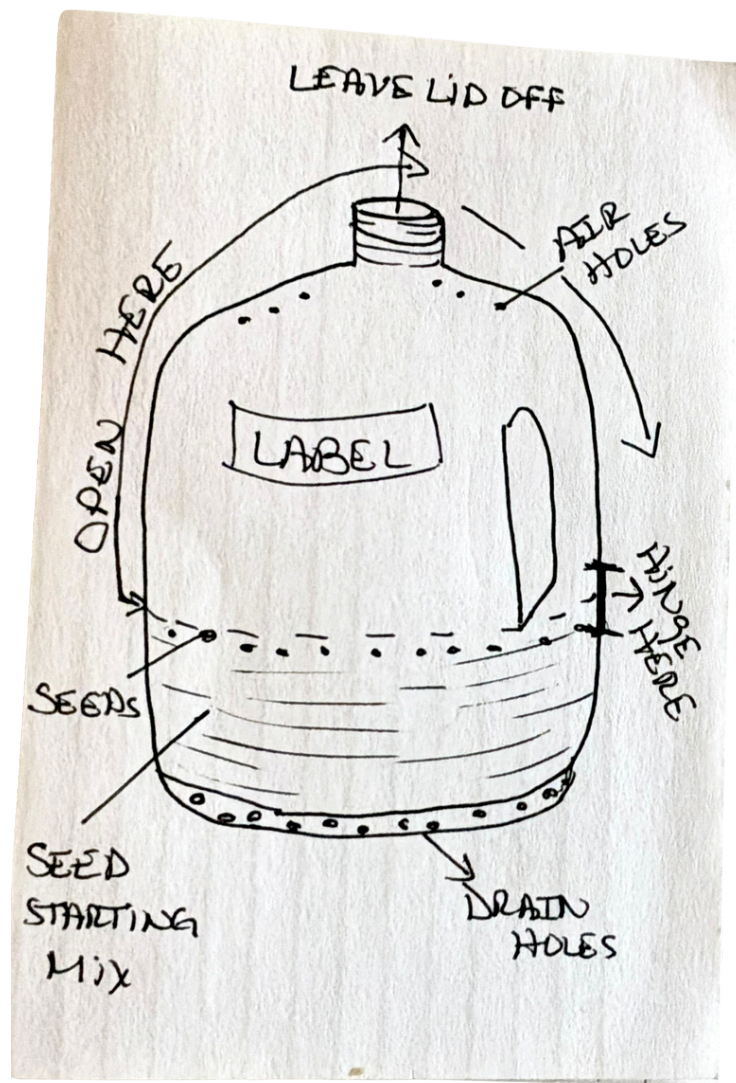 LEAVE LiD OFF
AIR
HOLES
OPEN HERE
LABEL
HiNGE
HERE
SEEDS
SEED
STARTING
MiX
DRAIN
HOLES